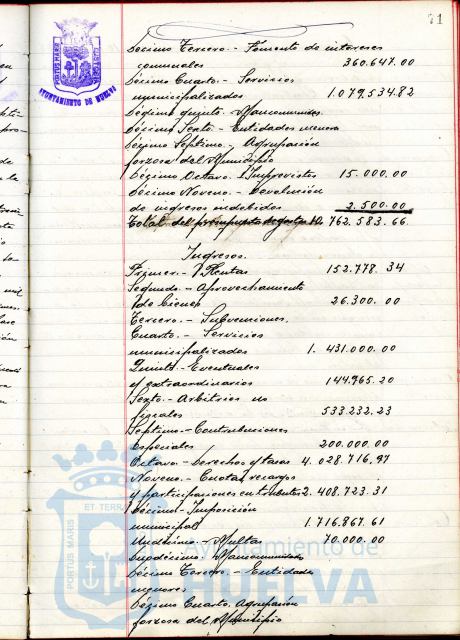 71
Decimo Tercero.- Fomento de intereses
comunales 360.647.00
Décimo Cuarto.- Servicios
municipalizados 1.079.534.82
Décimo quinto.- Mancomunidades
Décimo Sexto.- Entidades menores
Décimo Septimo.- Agrupación
forzosa del Municipio
Décimo Octavo.- Imprevistos 15.000.00
Décimo Noveno.- Devolución
de ingresos indebidos 2.500.00
Total del presupuesto de gastos 12.762.583.66
Ingresos.
Primer.- Rentas 152.778.34
Segundo.- Aprovechamiento
de bienes 26.300.00
Tercero.- Subvenciones.
Cuarto.- Servicios
municipalizados 1.431.000.00
Quinto.- Eventuales
y extraordinarios 144.965.20
Sexto.- Arbitrios no
fiscales 533.232.23
Septimo.- Contribuciones
Especiales 200.000.00
Octavo.- Derechos y tasas 4.028.716,97
Noveno.- Cuotas, recargos
y participaciones en tributos 2.408.723.31
Décimo.- Imposición
municipal 1.716.867.61
Undécimo.- Multas 70.000.00
Duodécimo.- Mancomunidades
Décimo Tercero.- Entidades
menores
Décimo Cuarto. Agrupación
forzosa del Municipio
PORTUS MARIS
AYUNTAMIENTO DE HUELVA
PORTUS MARIS ET TERRAE
Ayuntamiento de
HUELVA